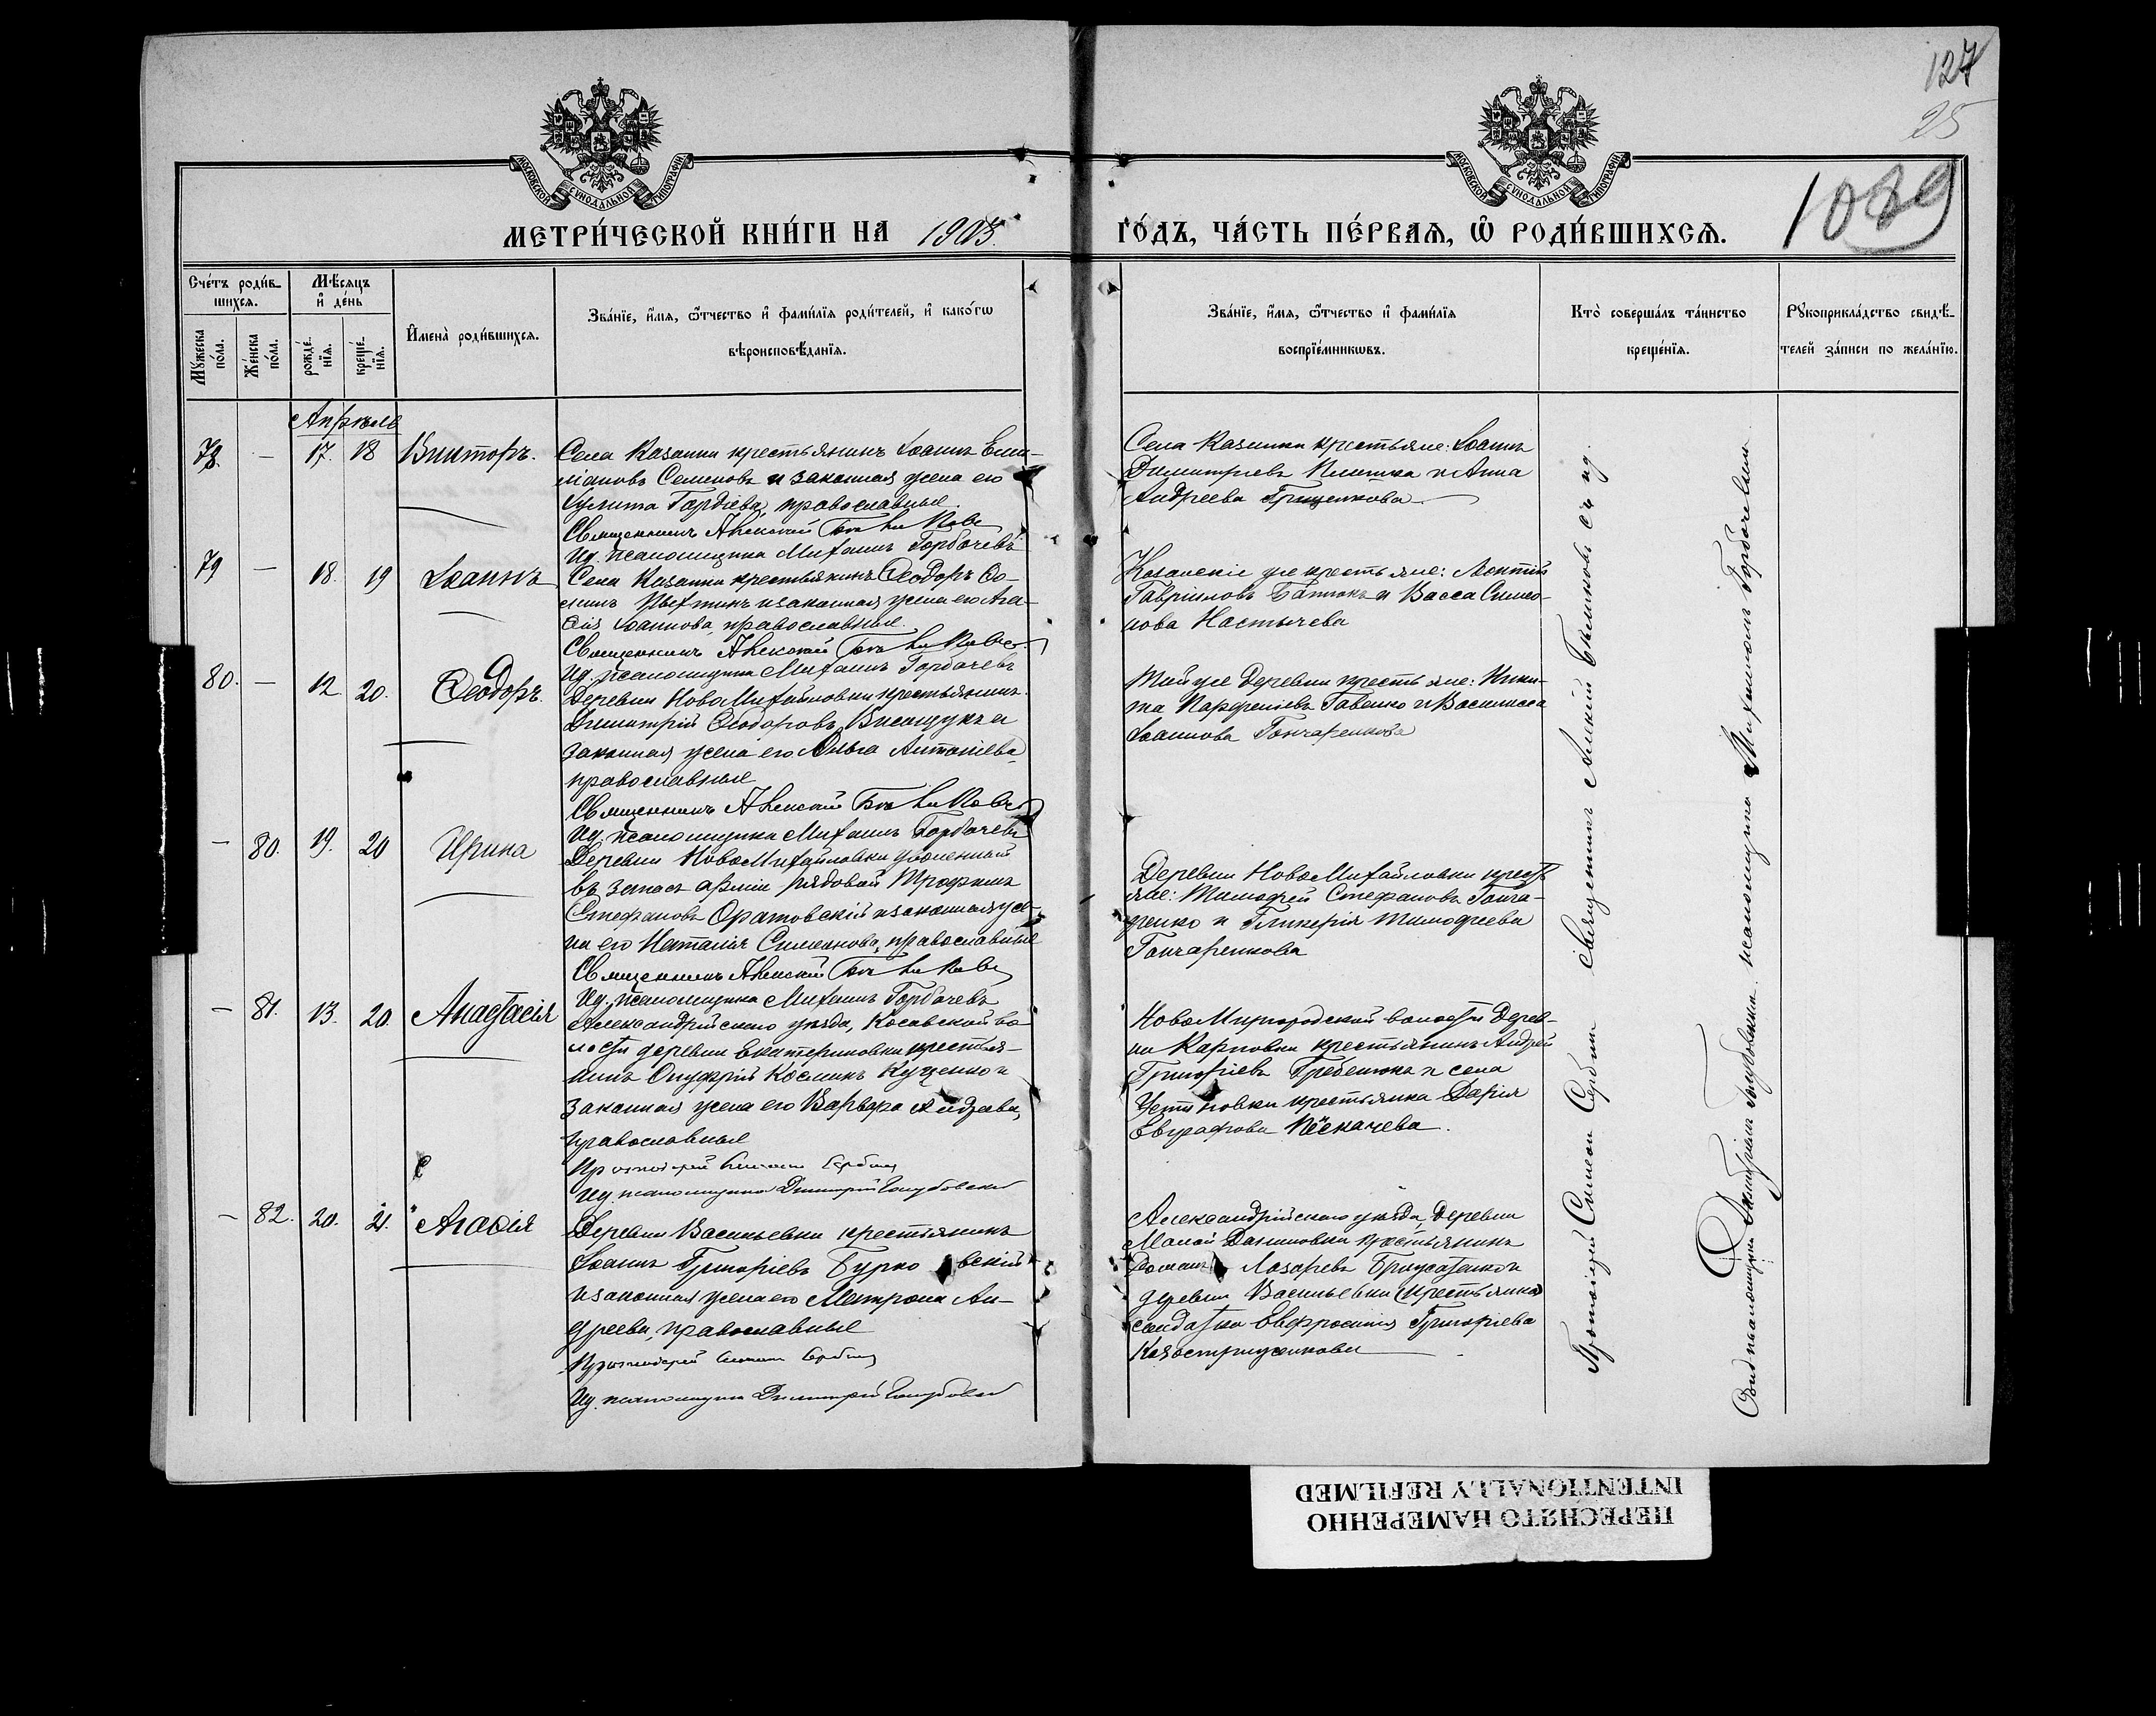 127
25
1089
МОСКОВСКОЙ СУНОДАЛЬНОЙ ТИПОГРАФІИ
МОСКОВСКОЙ СУНОДАЛЬНОЙ ТИПОГРАФІИ
МЕТРИ́ЧЕСКОЙ КНИ́ГИ НА 1905.
ГО́ДЪ, ЧА́СТЬ ПЕ́РВАЯ, Ѡ РОДИ́ВШИХСЯ.
Сче́тъ роди́в-
шихся.
Мѣ́сяцъ
и де́нь
Мꙋ́жеска по́ла.
Же́нска по́ла.
рожде́-нїя.
креще́-нїя.
Имена̀ роди́вшихся.
Зва́нїе, и́мя, ѻ́тчество и фами́лїя роди́телей, и како́гѡ
вѣроисповѣ́данїя.
Зва́нїе, и́мя, ѻ́тчество и фами́лїя
воспрїе́мникѡвъ.
Кто̀ соверша́лъ та́инство
креще́нїя.
Рꙋкоприкла́дство свидѣ́-
телей за́писи по жела́нїю.
Апрѣль
78. — 17. 18 Викторъ.
Села Казанки крестьянинъ Іоаннъ Еми-
ліановъ Семеновъ и законная жена его
Гордіева, православные.
Священникъ Алексій
Ид. псаломщика Михаилъ Горбачевъ
Села Казанки крестьяне: Іоаннъ
Димитріевъ и Анна
Андреева Грищенкова
79 — 18. 19 Іоаннъ
Села Казанки крестьянинъ Ѳеодоръ Ѳо-
минъ и законная жена его Ага-
ѳія Іоаннова, православные.
Священникъ Алексій
Ид. псаломщика Михаилъ Горбачевъ
же крестьяне: Леонтій
Гавріиловъ и Васса Симео-
нова
80. — 12 20. Ѳеодоръ.
Деревни НовоМихайловки крестьянинъ
Димитрій Ѳеодоровъ и
законная жена его Ольга Антоніева
православные
Священникъ Алексій
Ид. псаломщика Михаилъ Горбачевъ
Той же деревни крестьяне: Ники-
та Парфеніевъ Гавенко и Василисса
Іоаннова Гончаренкова
— 80. 19. 20 Ирина
Деревни НовоМихайловки уволенный
въ запасъ арміи рядовой Трофимъ
Стефановъ Оратовскій и законная же-
на его Наталія Симеонова, православные
Священникъ Алексій
Ид. псаломщика Михаилъ Горбачевъ
Деревни НовоМихайловки крестья-
не: Тимофей Стефановъ Гонча-
ренко и Гликерія Тимофеева
Гончаренкова
— 81. 13. 20. Анастасія
Александрійскаго уѣзда, Косовской во-
лости деревни Екатериновки крестья-
нинъ Онуфрій Косминъ Куценко и
законная жена его Варвара Андреева,
православные
Протоіерей Симеон Сербин
Ид. псаломщика Димитрій Голубовскій
НовоМиргородской волости дерев-
ни Карповки крестьянинъ Андрей
Григоріевъ Гребенюкъ и села
крестьянка Дарія
Евграфова
— 82. 20. 21. Агаѳія
Деревни Васильевки крестьянинъ
Іоаннъ Григоріевъ Бурковскій
и законная жена его Матрона Ан-
дреева, православные
Протоіерей Симеон Сербин
Ид. псаломщика Димитрій Голубовскій
Александрійскаго уѣзда, деревни
Малой Даниловки крестьянинъ
Роман Лазаревъ и
деревни Васильевки крестьянка
солдатка Евфросинія Григоріева
Протоіерей Симеон Сербин священникъ Алексій Бѣликовъ съ ид.
Димитріем Голубовским. псаломщика Михаиломъ Горбачевым
ПЕРЕСНЯТО НАМЕРЕННО
INTENTIONALLY REFILMED